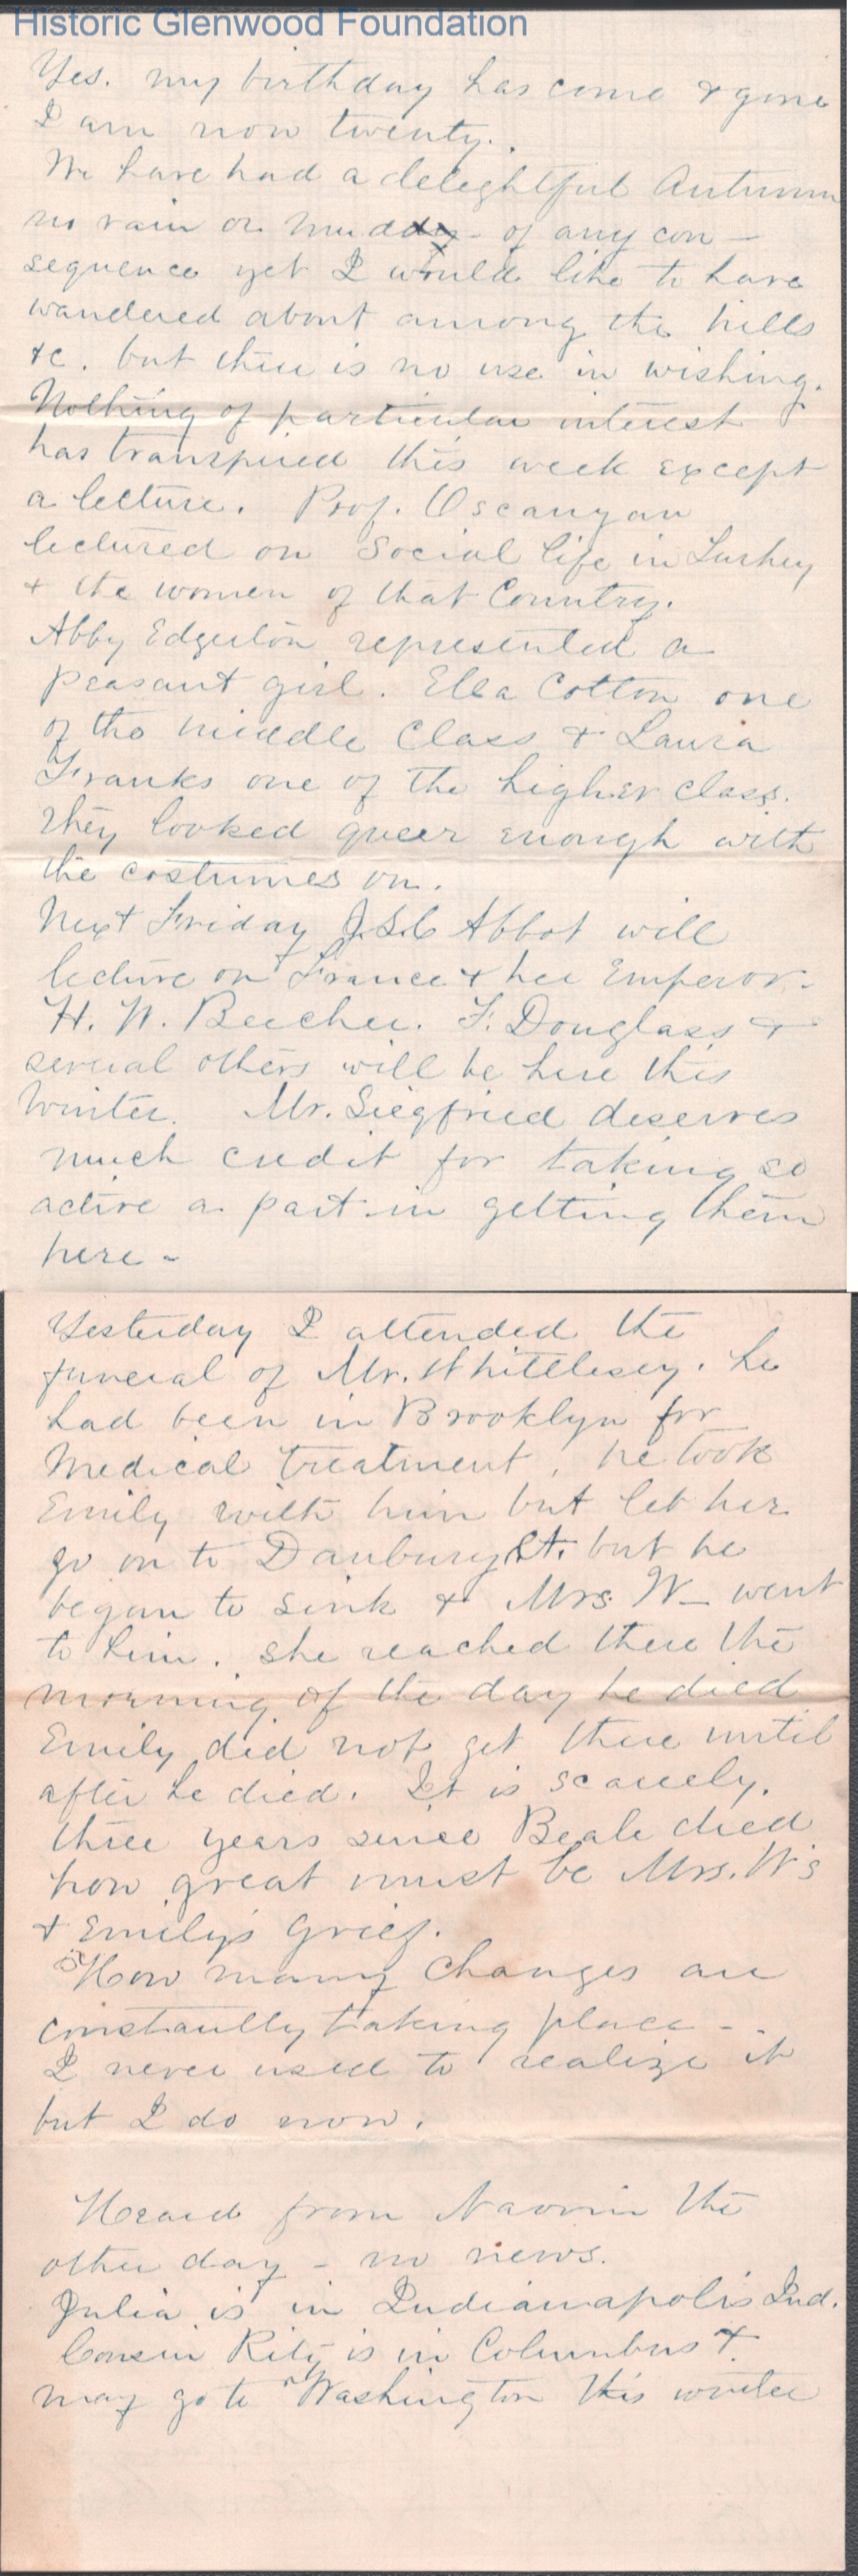 Historic Glenwood Foundation
Yes. my birthday has come & gone
I am now twenty.
We have had a delightful Autumn
no rain or mud of any con-
sequence yet I would like to have
wandered about among the hills
&c. but there is no use in wishing.
Nothing of particular interest
has transpired this week except
a lecture. Prof. Oscanyan
lectured on Social life in Turkey
& the women of that Country.
Abby Edgerton represented a
peasant girl. Ella Cotton one
of the middle Class & Laura
Franks one of the higher class.
They looked queer enough with
the costumes on.
Next Friday J.S.C Abbot will
lecture on France & her Emperor.
H. W. Beecher. F. Douglass &
several others will be here this
Winter. Mr. Siegfried deserves
much credit for taking so
active a part in getting them
here -
Yesterday I attended the
funeral of Mr. Whittlesey. he
had been in Brooklyn for
Medical treatment, he took
Emily with him but let her
go on to Danbury Ct. but he
began to sink & Mrs. W- went
to him. she reached there the
morning of the day he died
Emily did not get there until
after he died. It is scarcely
three years since Beale died
how great must be Mrs. W's
& Emily's grief.
How many changes are
constantly taking place -
I never used to realize it
but I do now.
Heard from Naomi the
other day - no news.
Julia is in Indianapolis Ind.
Cousin Rity is in Columbus &
may go to Washington this winter